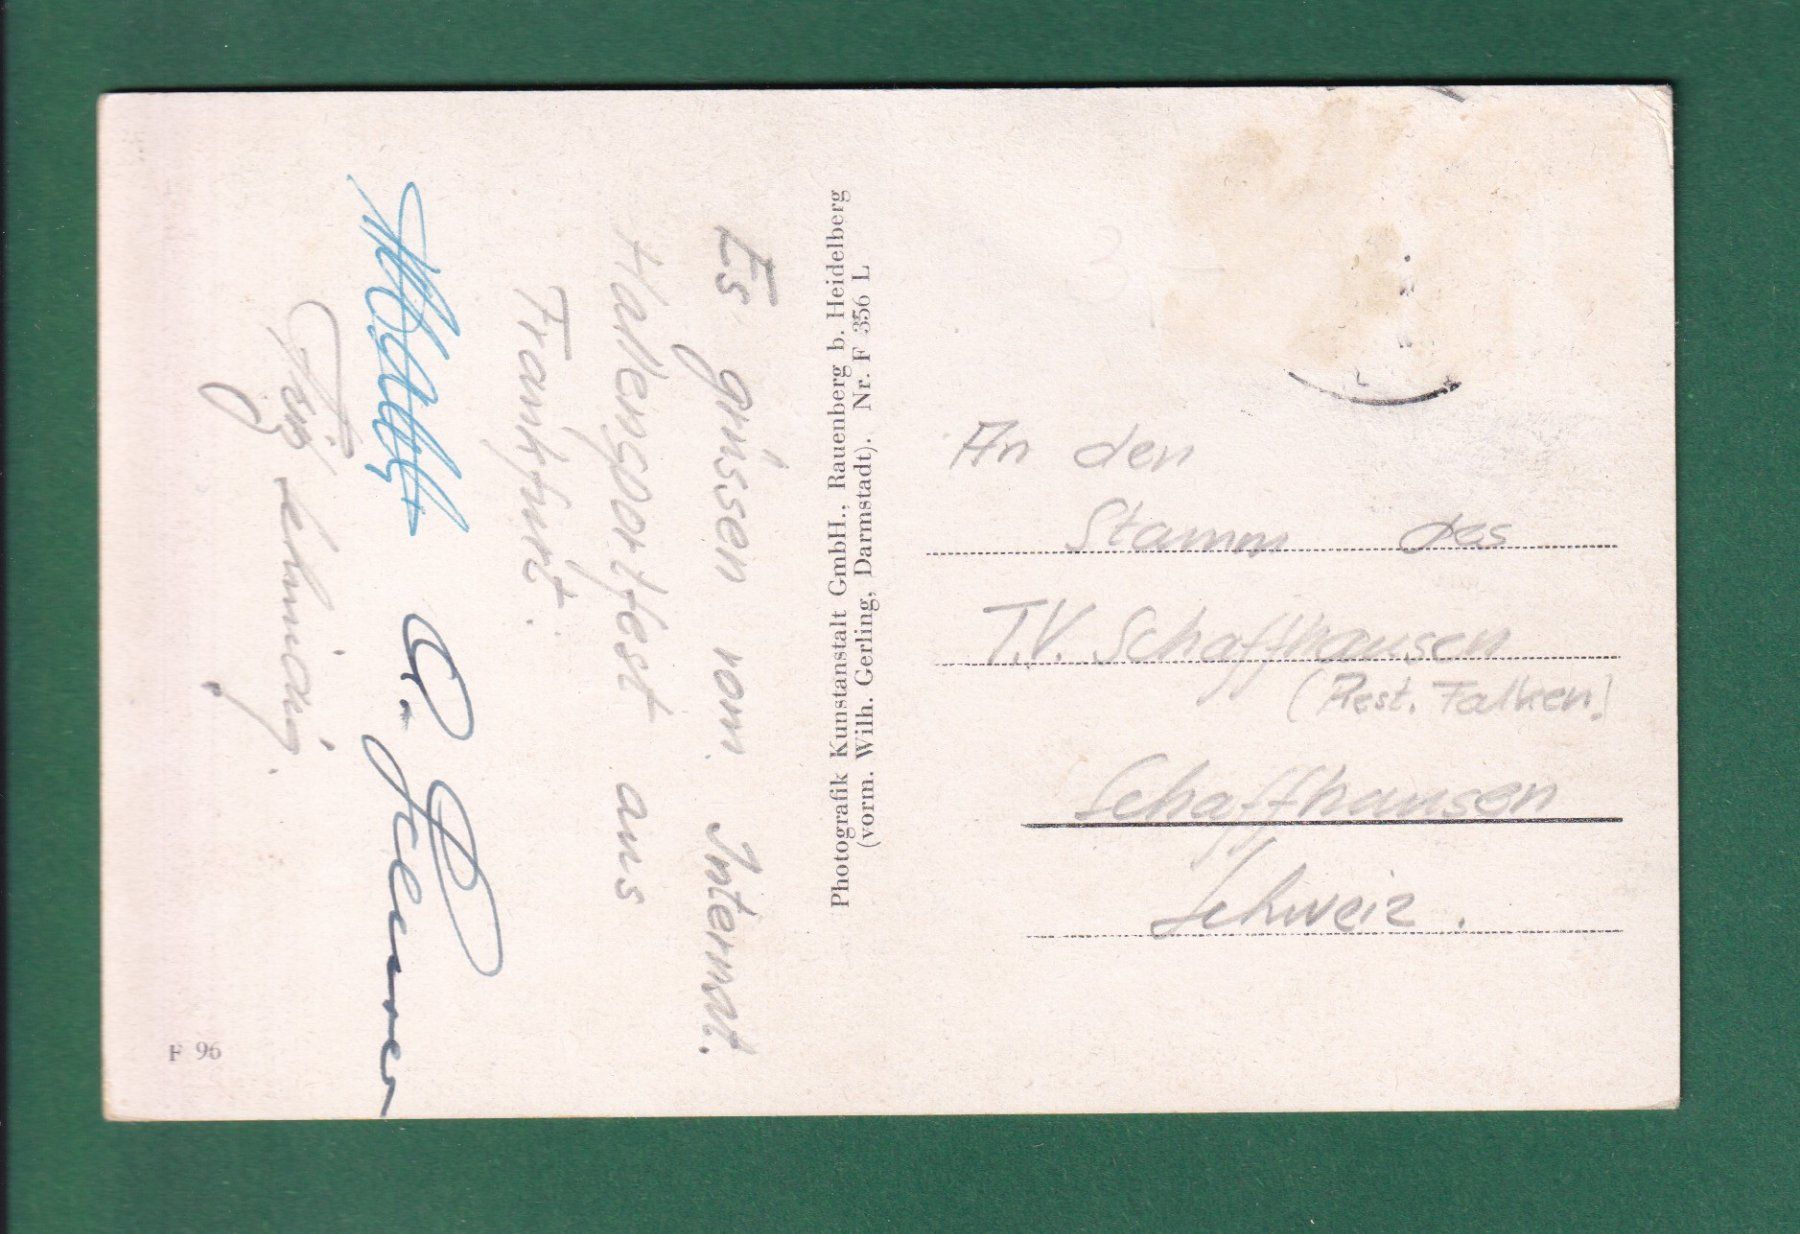 Es grüssen vom Internat.
Hallensportfest aus
Frankfurt.
Photografik Kunstanstalt GmbH., Rauenberg b. Heidelberg
(vorm. Wilh. Gerling, Darmstadt). Nr. F 356 L
An den
Stamm des
T.V. Schaffhausen
(Rest. Falken)
Schaffhausen
Schweiz.
F 96